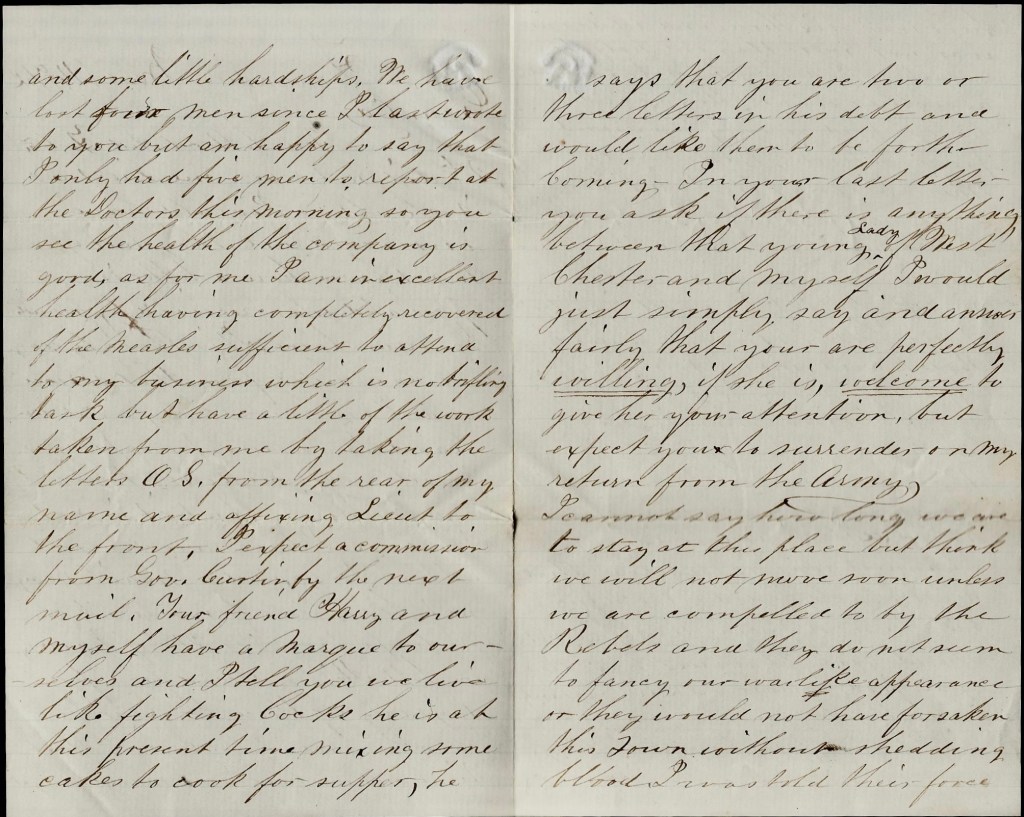 and some little hardships. We have
lost four men since I last wrote
to you but am happy to say that
I only had five men to report at
the Doctors this morning, so you
see the health of the company is
good, as for me I am in excellent
health having completely recovered
of the measles sufficient to attend
to my business which is no trifling
task but have a little of the work
taken from me by taking the
letters O.S. from the rear of my
name and affixing Lieut to
the front. I expect a commission
from Gov. Curtin by the next
mail. Your friend Harry and
myself have a Marque to our-
-selves and I tell you we live
like fighting Cocks he is at
this present time mixing some
cakes to cook for supper, he
says that you are two or
three letters in his debt and
would like them to be forth
Coming- In your last letter
you ask if there is anything
between that young Lady of West
Chester and myself I would
just simply say and answer
fairly that your are perfectly
willing, if she is, welcome to
give her your attention, but
expect you to surrender on my
return from the Army,
I cannot say how long we are
to stay at this place but think
we will not move soon unless
we are compelled to by the
Rebels and they do not seem
to fancy our warlike appearance
or they would not have forsaken
this Town without shedding
blood I was told their force